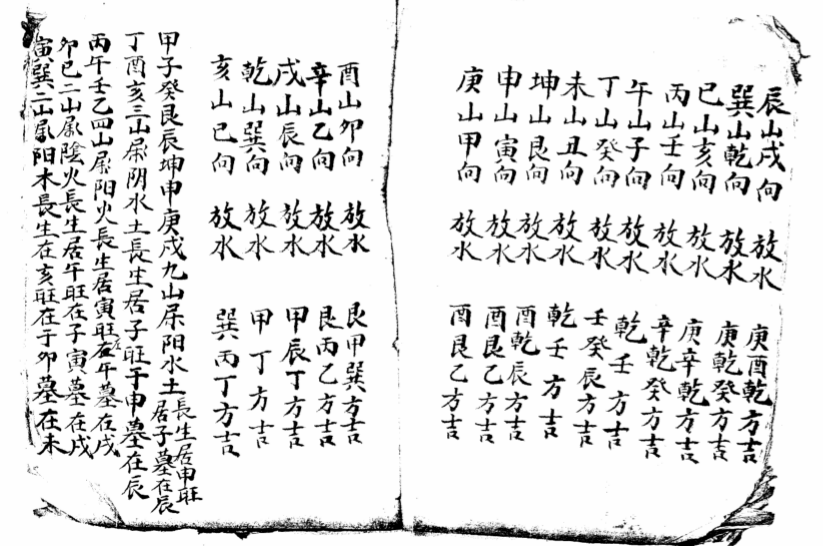 辰山戌向 放水 庚酉乾方吉
巽山乾向 放水 庚乾癸方吉
巳山亥向 放水 庚辛乾方吉
丙山壬向 放水 辛乾癸方吉
午山子向 放水 乾壬方吉
丁山癸向 放水 壬癸辰方吉
未山丑向 放水 乾壬方吉
坤山艮向 放水 酉乾辰方吉
申山寅向 放水 酉艮乙方吉
庚山甲向 放水 酉艮乙方吉
酉山卯向 放水 艮甲巽方吉
辛山乙向 放水 艮丙乙方吉
戌山辰向 放水 甲辰丁方吉
乾山巽向 放水 甲丁方吉
亥山巳向 放水 巽丙丁方吉
甲子癸艮辰坤申庚戌九山屎阳水土長生居申旺居子墓在辰
丁酉亥三山屎阴水土長生居子旺于申墓在辰
丙午壬乙四山屎阳火長生居寅旺在午墓在戌
卯巳二山屎陰火長生居午旺在子寅墓在戌
寅巽二山屎阳木長生在亥旺在于卯墓在未